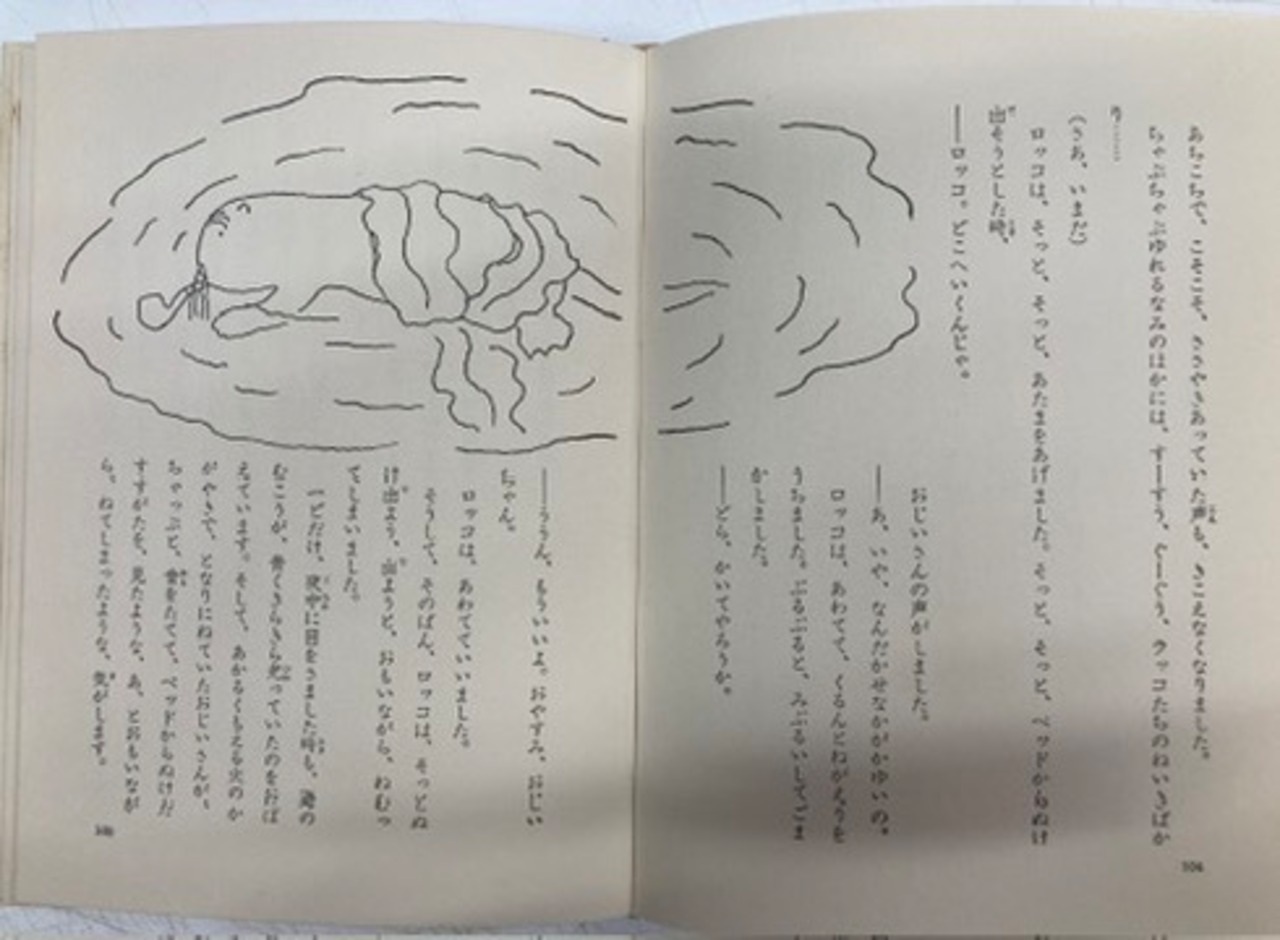 あちこちで、こそこそ、ささやきあっていた声も、きこえなくなりました。
ちゃぷちゃぷゆれるなみのほかには、すーすう、くーくう、ラッコたちのねいきばか
り……
(さあ、いまだ)
ロッコは、そっと、そっと、あたまをあげました。そっと、そっと、ベッドからぬけ
出そうとした時、
――ロッコ。どこへいくんじゃ。
おじいさんの声がしました。
――あ、いや、なんだかせなかがかゆいの。
ロッコは、あわてて、くるんとねがえりを
うちました。ぶるぶると、みぶるいしてごま
かしました。
――どら、かいてやろうか。
104
――ううん、もういいよ。おやすみ、おじい
ちゃん。
ロッコは、あわてていいました。
そうして、そのばん、ロッコは、そっとぬ
け出よう、出ようと、おもいながら、ねむっ
てしまいました。
一どだけ、夜中に目をさました時も、海の
むこうが、青くきらきら光っていたのをおぼ
えています。そして、あかるくもえる火のか
がやきで、となりにねていたおじいさんが、
ちゃっぷと、音をたてて、ベッドからぬけだ
すすがたを、見たような、あ、とおもいなが
ら、ねてしまったような、気がします。